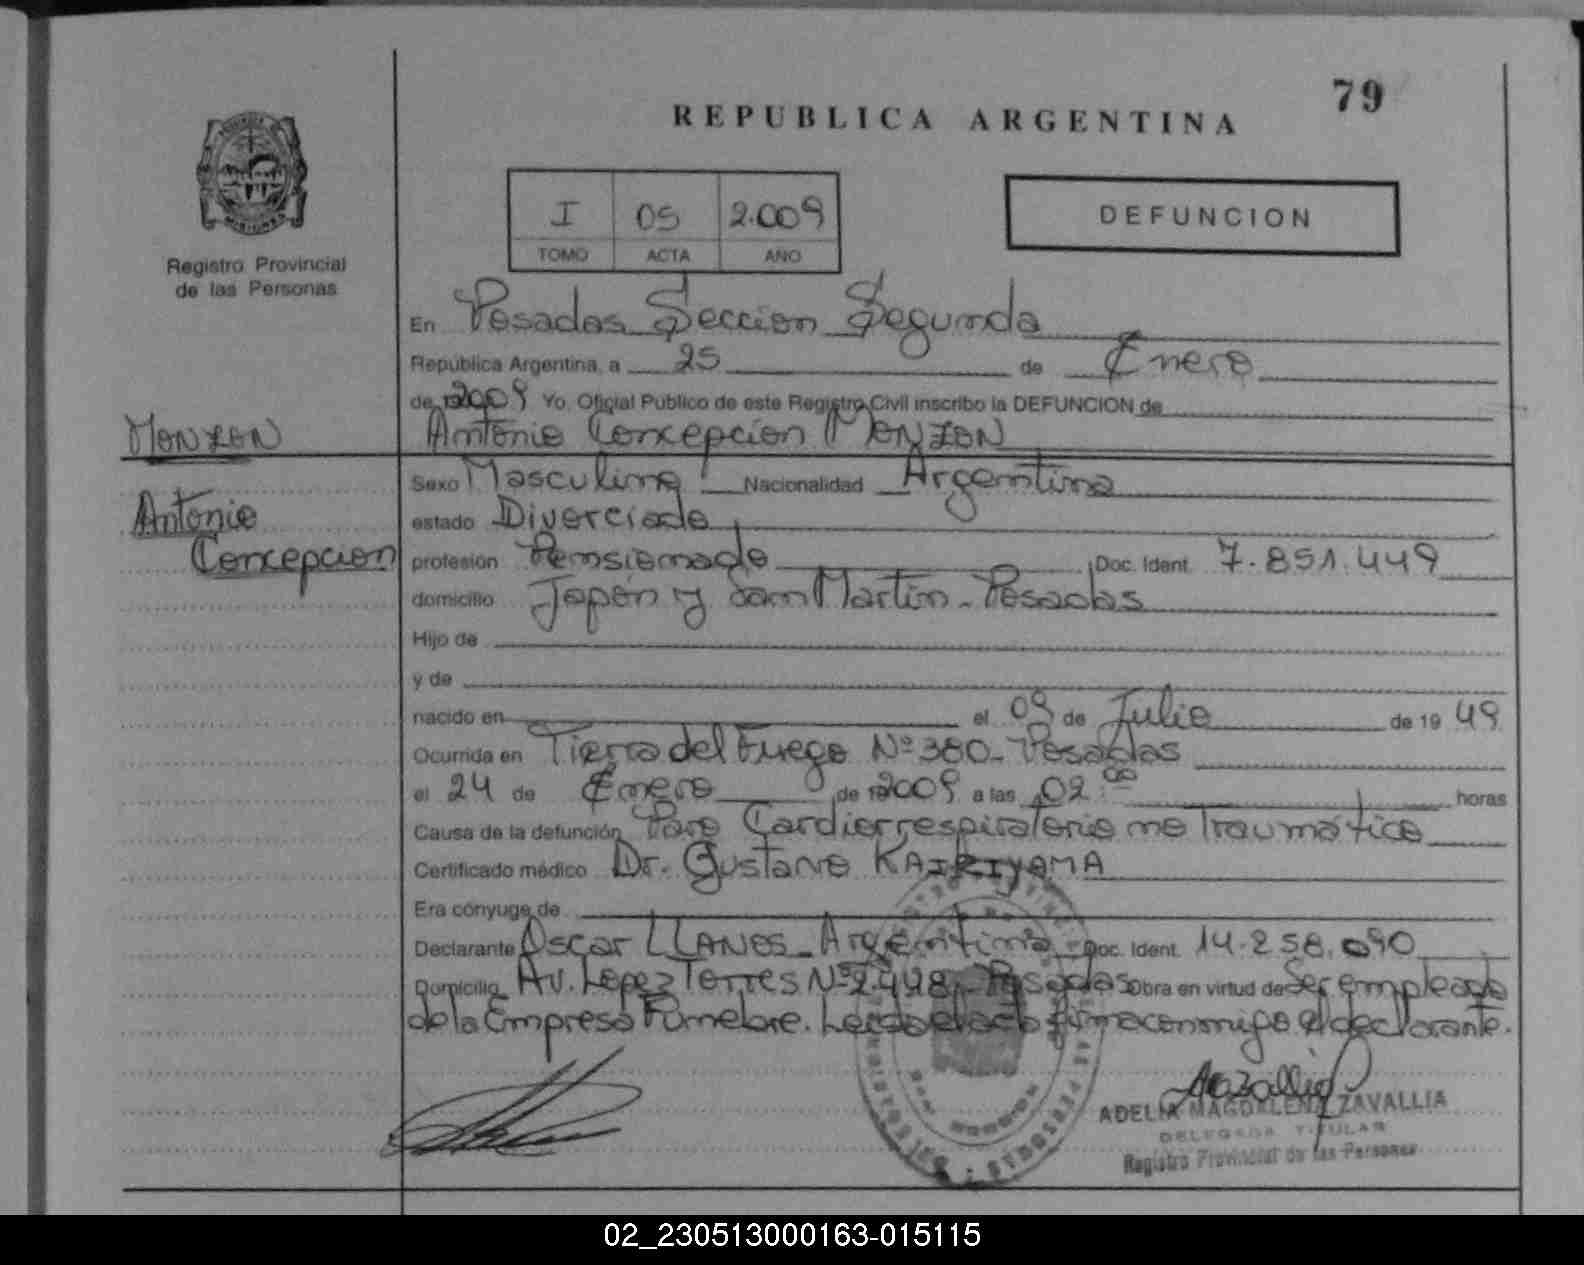 79
REPUBLICA ARGENTINA
I 05 2.009
TOMO ACTA AÑO
DEFUNCION
Registro Provincial
de las Personas
En Posadas Seccion Segunda
República Argentina, a 25 de Enero
de 2009 Yo, Oficial Público de este Registro Civil inscribo la DEFUNCION de
MONZON
Antonio Concepcion MONZON
Antonio
Concepcion
Sexo Masculino Nacionalidad Argentina
estado Divorciado
profesión Pensionado Doc. Ident. 7.851.449
domicilio Japón y San Martin - Posadas
Hijo de
y de
nacido en el 09 de Julio de 19 49
Ocurrida en Tierra del Fuego Nº 380 - Posadas
el 24 de Enero de 2009 a las 02:00 horas
Causa de la defunción Paro Cardiorrespiratorio no Traumático
Certificado médico Dr. Gustavo KAIRIYAMA
Era cónyuge de
Declarante Oscar LLANOS - Argentino - Doc. Ident. 14.258.090
Domicilio Av. Lopez Torres Nº 2.448 - Posadas Obra en virtud de Ser empleado
de la Empresa Funebre. Leida el acta firma conmigo el declarante.
ADELIA MAGDALENA ZAVALLIA
DELEGADA TITULAR
Registro Provincial de las Personas
02_230513000163-015115